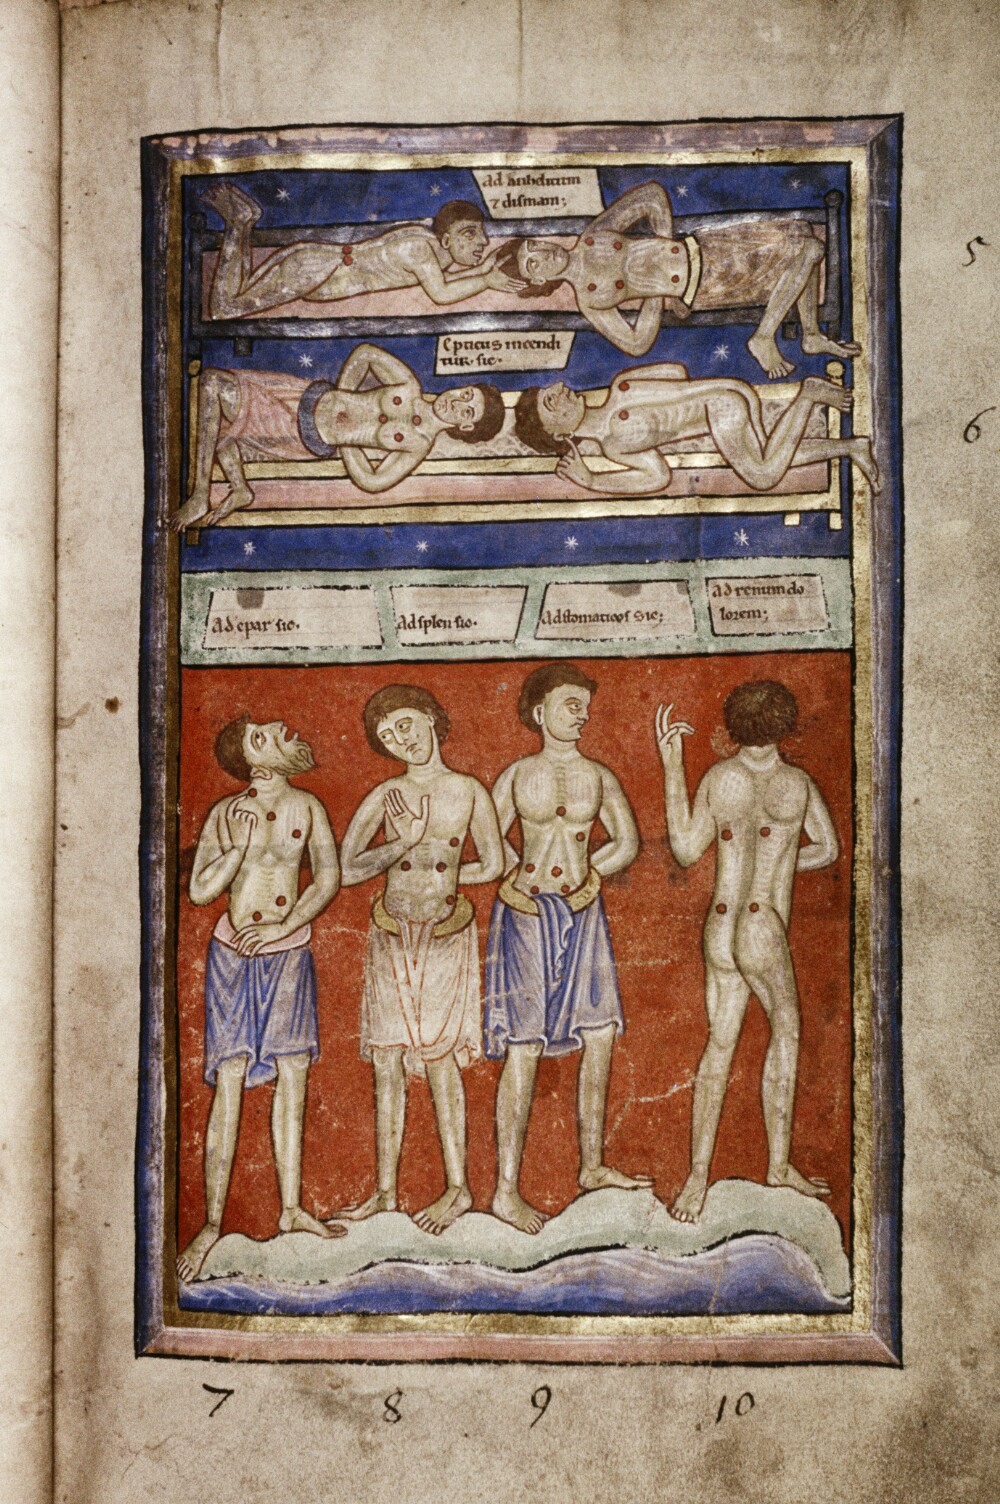 ad anhelitum
⁊ dismam;
Epticus incendi
tur. sic.
5
6
ad epar sic.
ad splen sic.
ad stomaticos sic;
ad renum do
lorem;
7 8 9 10